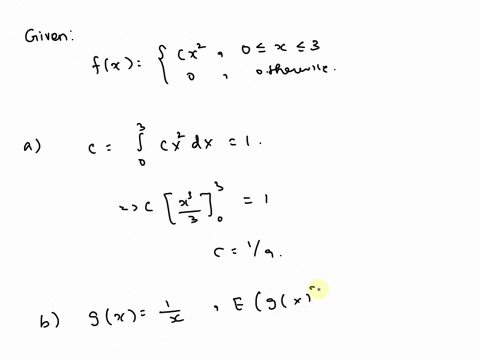 Given:
f(x): { cx², 0 ≤ x ≤ 3
0, otherwise.
a) c = ∫₀³ cx² dx = 1.
=> c [x³/3]₀³ = 1
c = 1/9.
b) g(x) = 1/x , E (g(x)